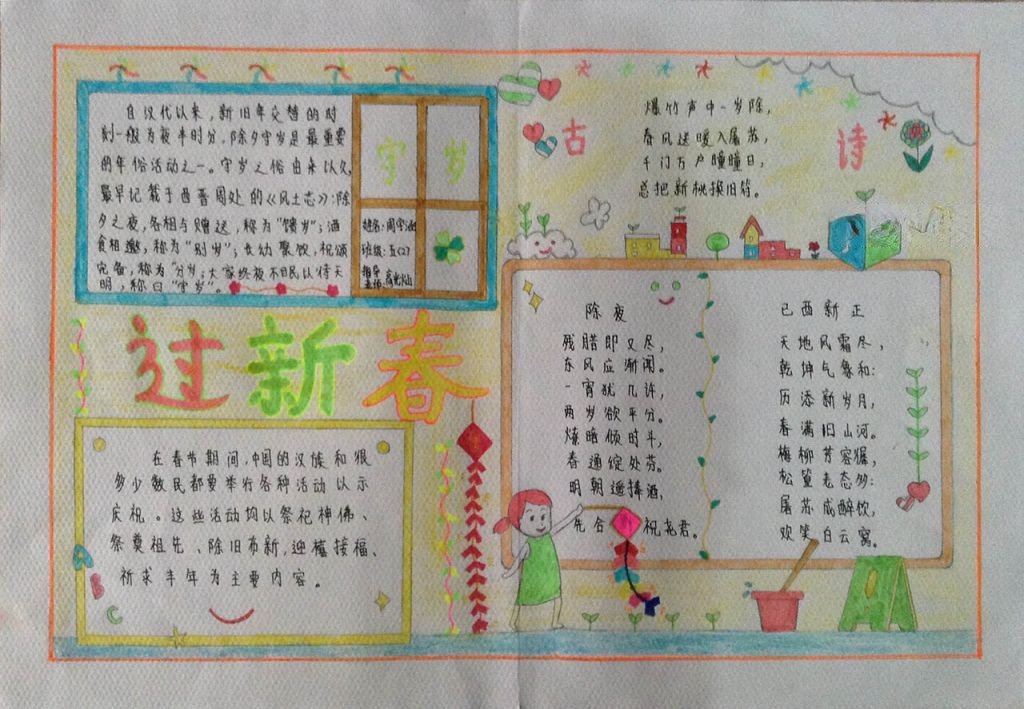 自汉代以来，新旧年交替的时
刻一般为夜半时分，除夕守岁是最重要
的年俗活动之一。守岁之俗由来以久，
最早记载于西晋周处的《风土志》：除
夕之夜，各相与赠送，称为“馈岁”；酒
食相邀，称为“别岁”；长幼聚饮，祝颂
完备，称为“分岁；大家终夜不眠，以待天
明，称曰“守岁”。
守岁
姓名：周宇
班级：五(2)
指导
老师：高
过新春
在春节期间，中国的汉族和很
多少数民都要举行各种活动以示
庆祝。这些活动均以祭祀神佛、
祭奠祖先、除旧布新、迎禧接福、
祈求丰年为主要内容。
A
B
C
古诗
爆竹声中一岁除，
春风送暖入屠苏，
千门万户瞳瞳日，
总把新桃换旧符。
除夜
残腊即又尽，
东风应渐闻。
一宵犹几许，
两岁欲平分。
燎暗倾时斗，
春通绽处芬。
明朝遥捧酒，
先合祝老君。
己酉新正
天地风霜尽，
乾坤气象和：
历添新岁月，
春满旧山河。
梅柳芳容穉，
松篁老态多：
屠苏成醉饮，
欢笑白云窝。